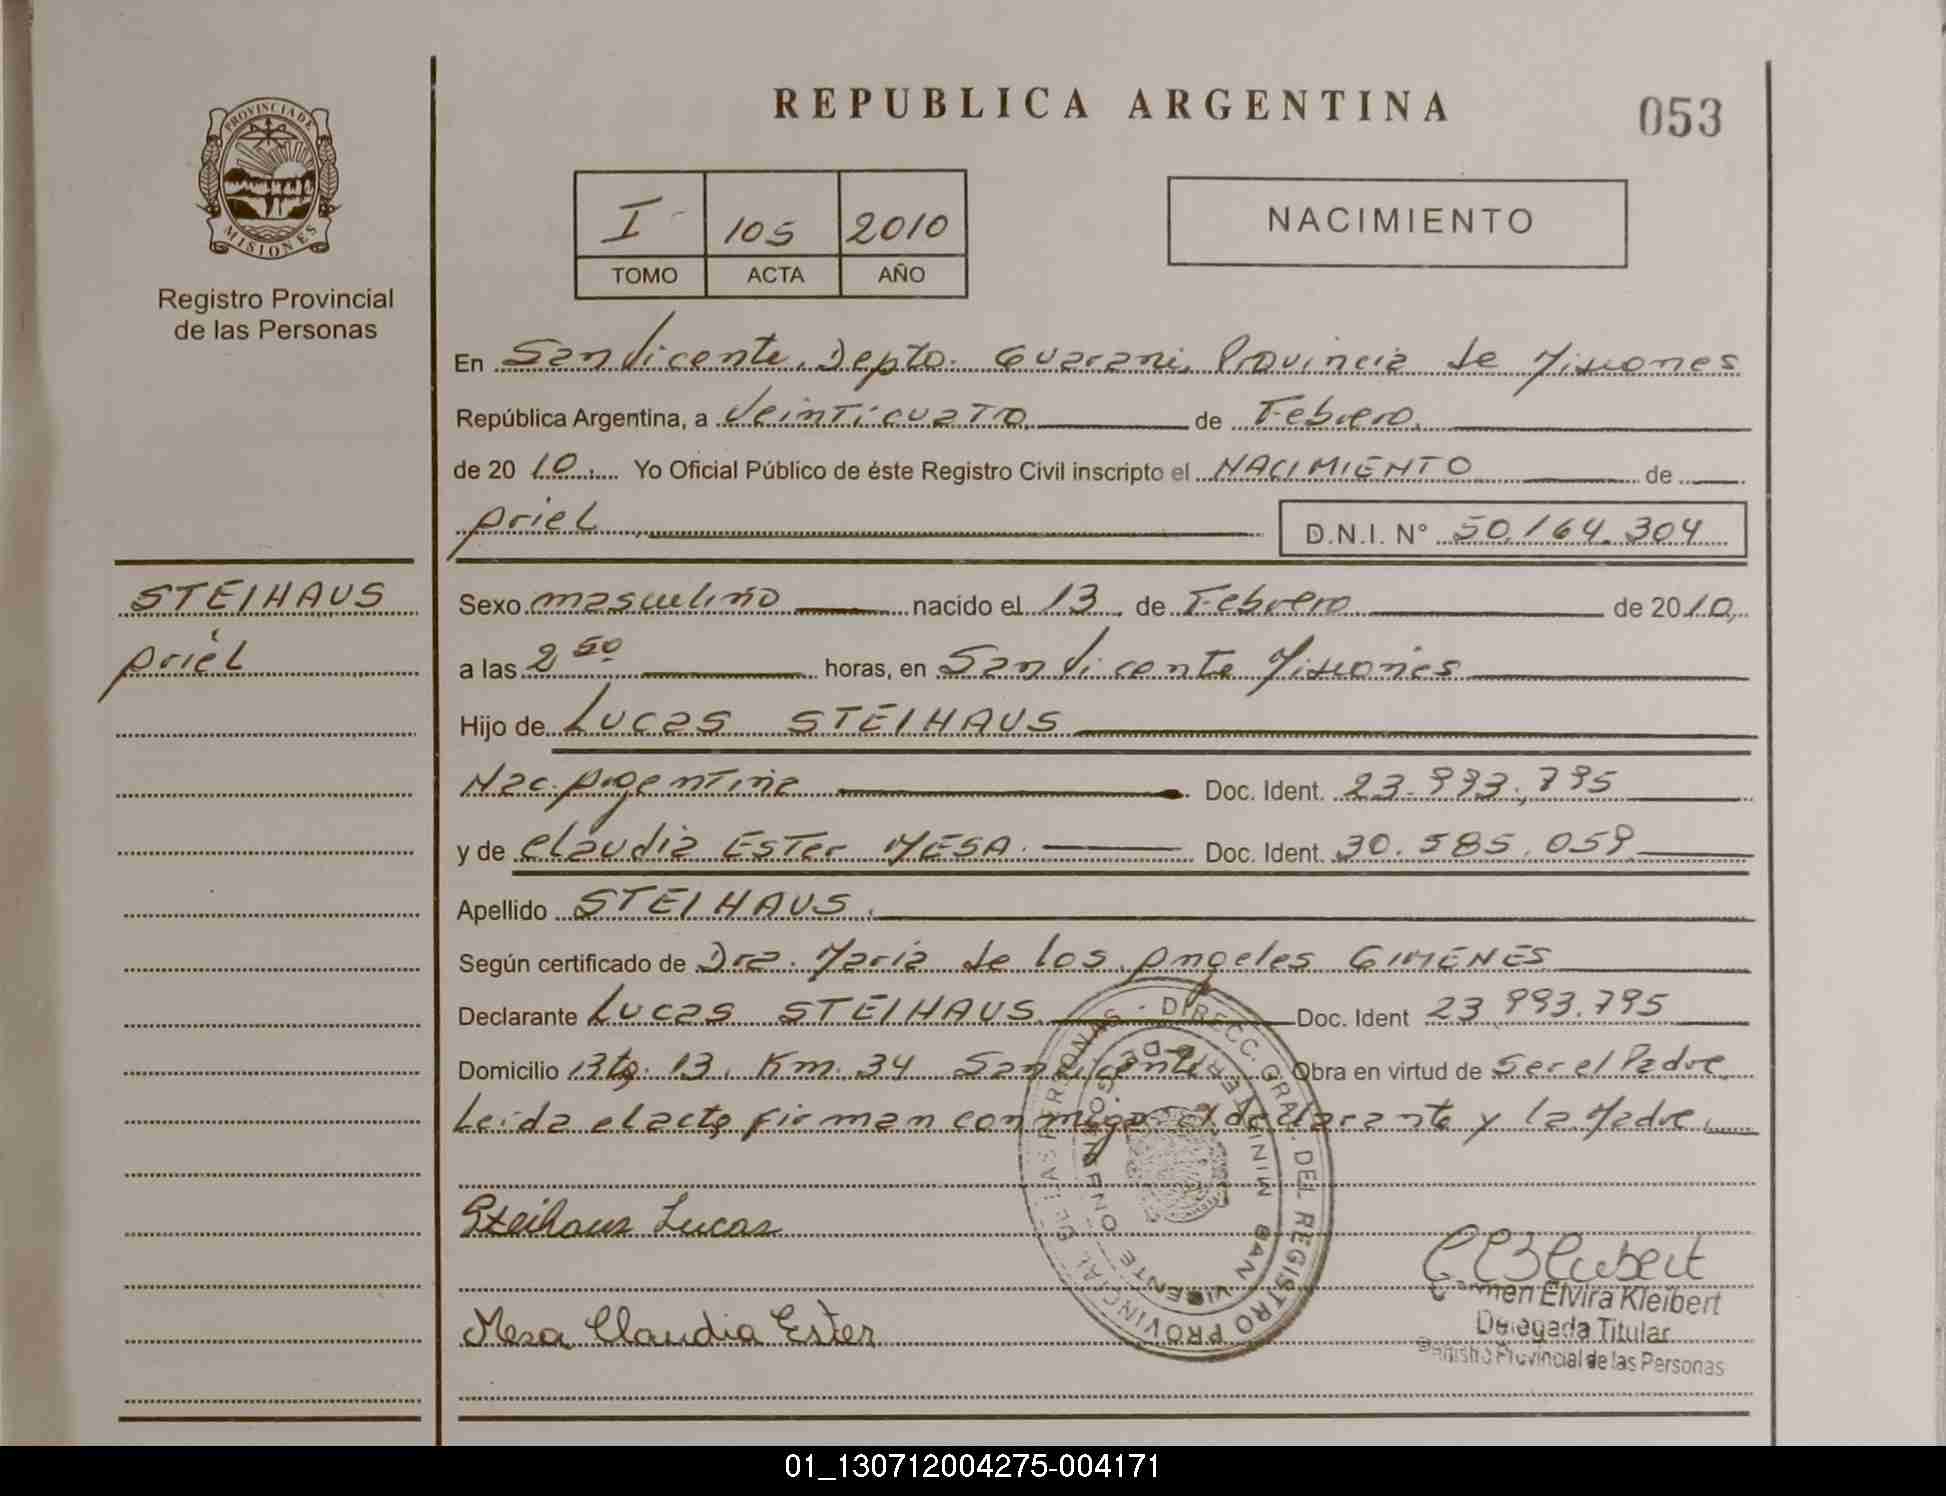 REPUBLICA ARGENTINA
053
PROVINCIA DE
MISIONES
Registro Provincial
de las Personas
I 105 2010
TOMO ACTA AÑO
NACIMIENTO
En San Vicente, Depto. Guarani, Provincia de Misiones
República Argentina, a Veinticuatro de Febrero
de 20 10. Yo Oficial Público de éste Registro Civil inscripto el NACIMIENTO de
Ariel
D.N.I. N° 50.164.304
STEIHAUS
Ariel
Sexo masculino nacido el 13 de Febrero de 2010
a las 2 50 horas, en San Vicente Misiones
Hijo de Lucas STEIHAUS
Nac. Argentina Doc. Ident. 23.993.795
y de Claudia Ester MESA. Doc. Ident. 30.585.059
Apellido STEIHAUS.
Según certificado de Dra. Maria de los Angeles GIMENES
Declarante Lucas STEIHAUS Doc. Ident 23 993.795
Domicilio Km. 34 San Vicente Obra en virtud de Ser el Padre
Leida el acta firman conmigo el declarante y la Madre.
Steihaus Lucas
Mesa Claudia Ester
DIRECC. GRAL. DEL REGISTRO PROVINCIAL DE LAS PERSONAS
SAN VICENTE
Carmen Elvira Kleibert
Delegada Titular
Registro Provincial de las Personas
01_130712004275-004171